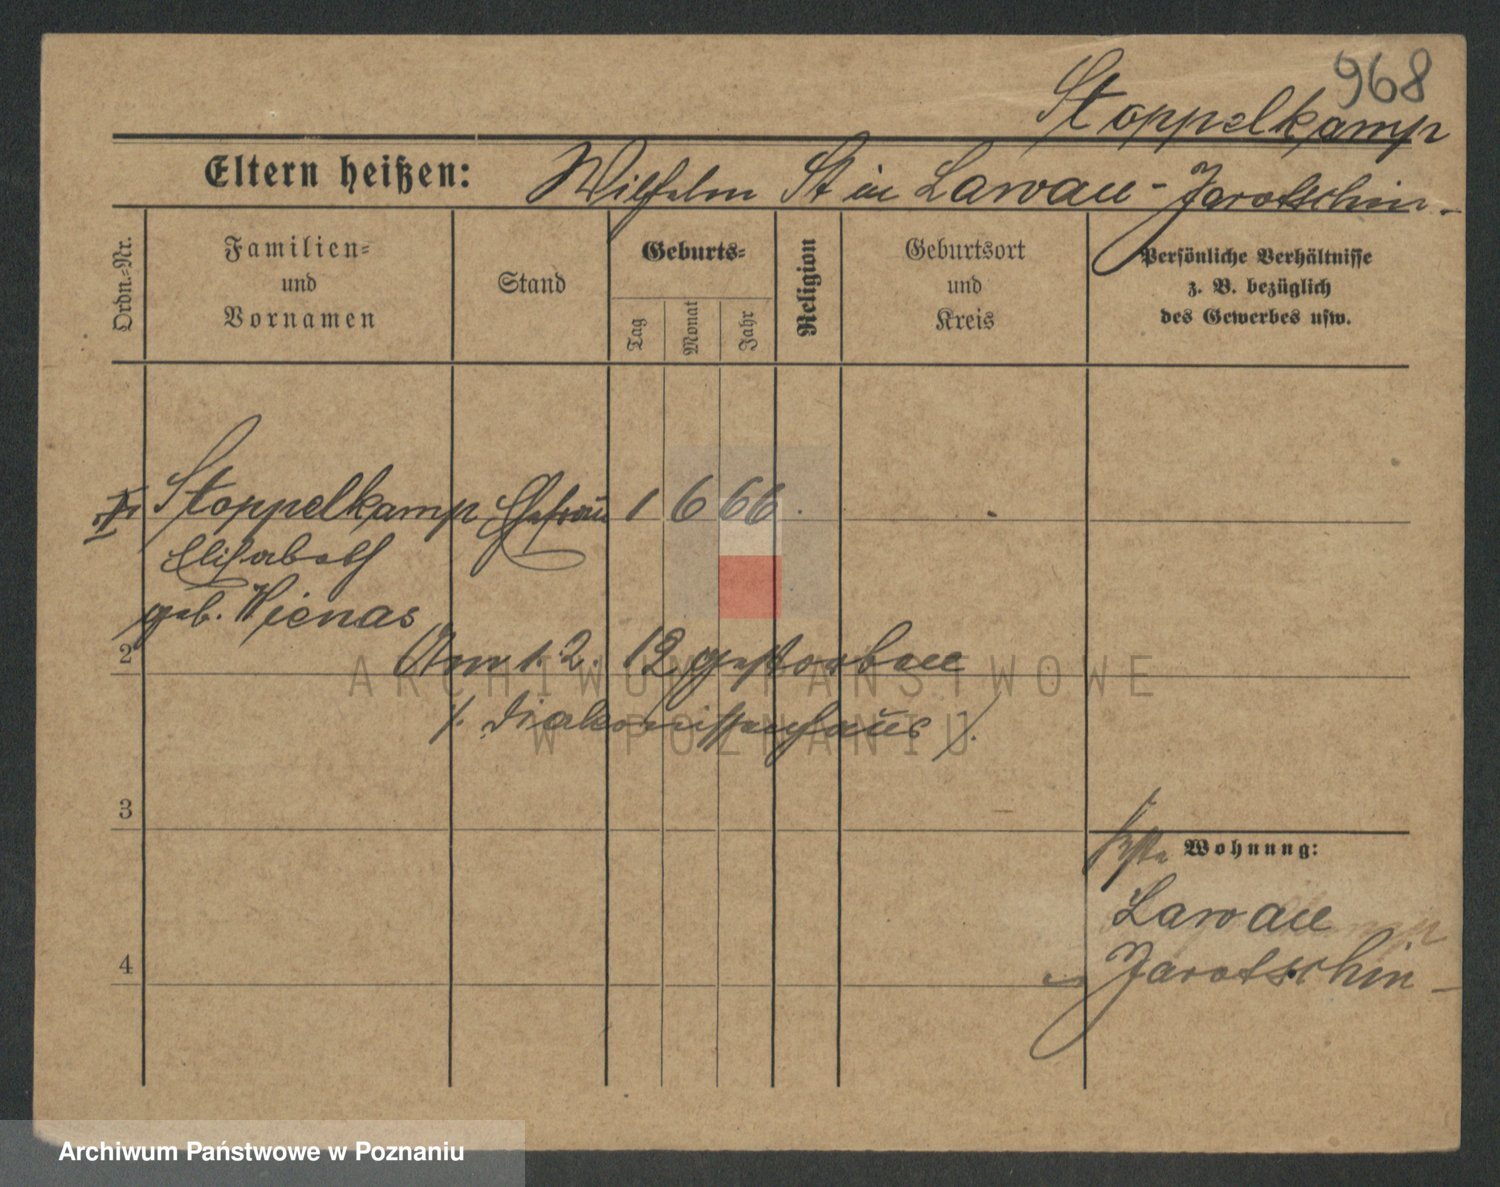 968
Stoppelkamp
Eltern heißen: Wilhelm St in Lawau - Jarotschin.
Ordn.-Nr.
Familien-
und
Vornamen
Stand
Geburts-
Tag
Monat
Jahr
Religion
Geburtsort
und
Kreis
Persönliche Verhältnisse
z. B. bezüglich
des Gewerbes usw.
Stoppelkamp Ehefrau 1 6 66.
Elisabeth
geb. Wienas
2 Am 1. 2. 12 gestorben
/. Diakonissenhaus /.
3
Wohnung:
Lawau
4
Jarotschin -
ARCHIWUM PAŃSTWOWE
W POZNANIU
Archiwum Państwowe w Poznaniu